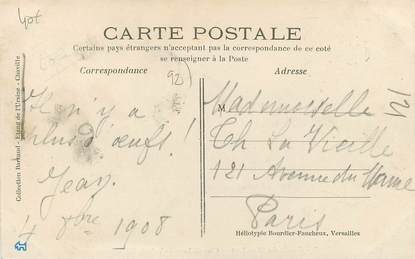 4pt
CARTE POSTALE
Certains pays étrangers n'acceptant pas la correspondance de ce coté
se renseigner à la Poste
Correspondance
Adresse
(92)
Il n'y a
plus d'œufs!
Jean
4 Xbre 1908
M Mademoiselle
Th La Vieille
121 Avenue du Maine
Paris
121
Collection Bertaud - Etang de l'Ursine - Chaville
Héliotypie Bourdier-Faucheux, Versailles